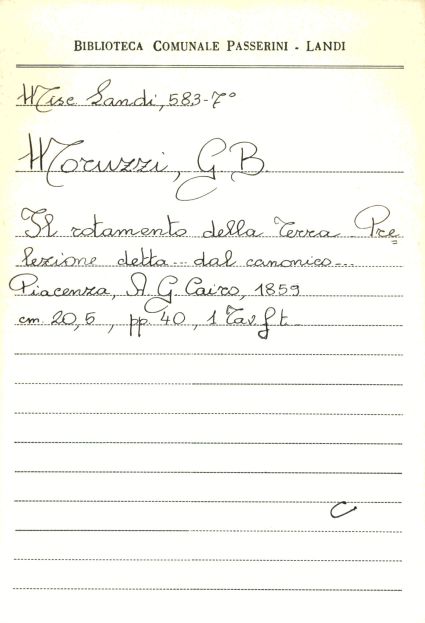 BIBLIOTECA COMUNALE PASSERINI - LANDI
Misc Landi, 583-7°
Moruzzi, G B.
Il rotamento della Terra. Pre=
lezione detta... dal canonico...
Piacenza, A. G. Cairo, 1859
cm. 20,5, pp. 40, 1 Tav. f t.
C